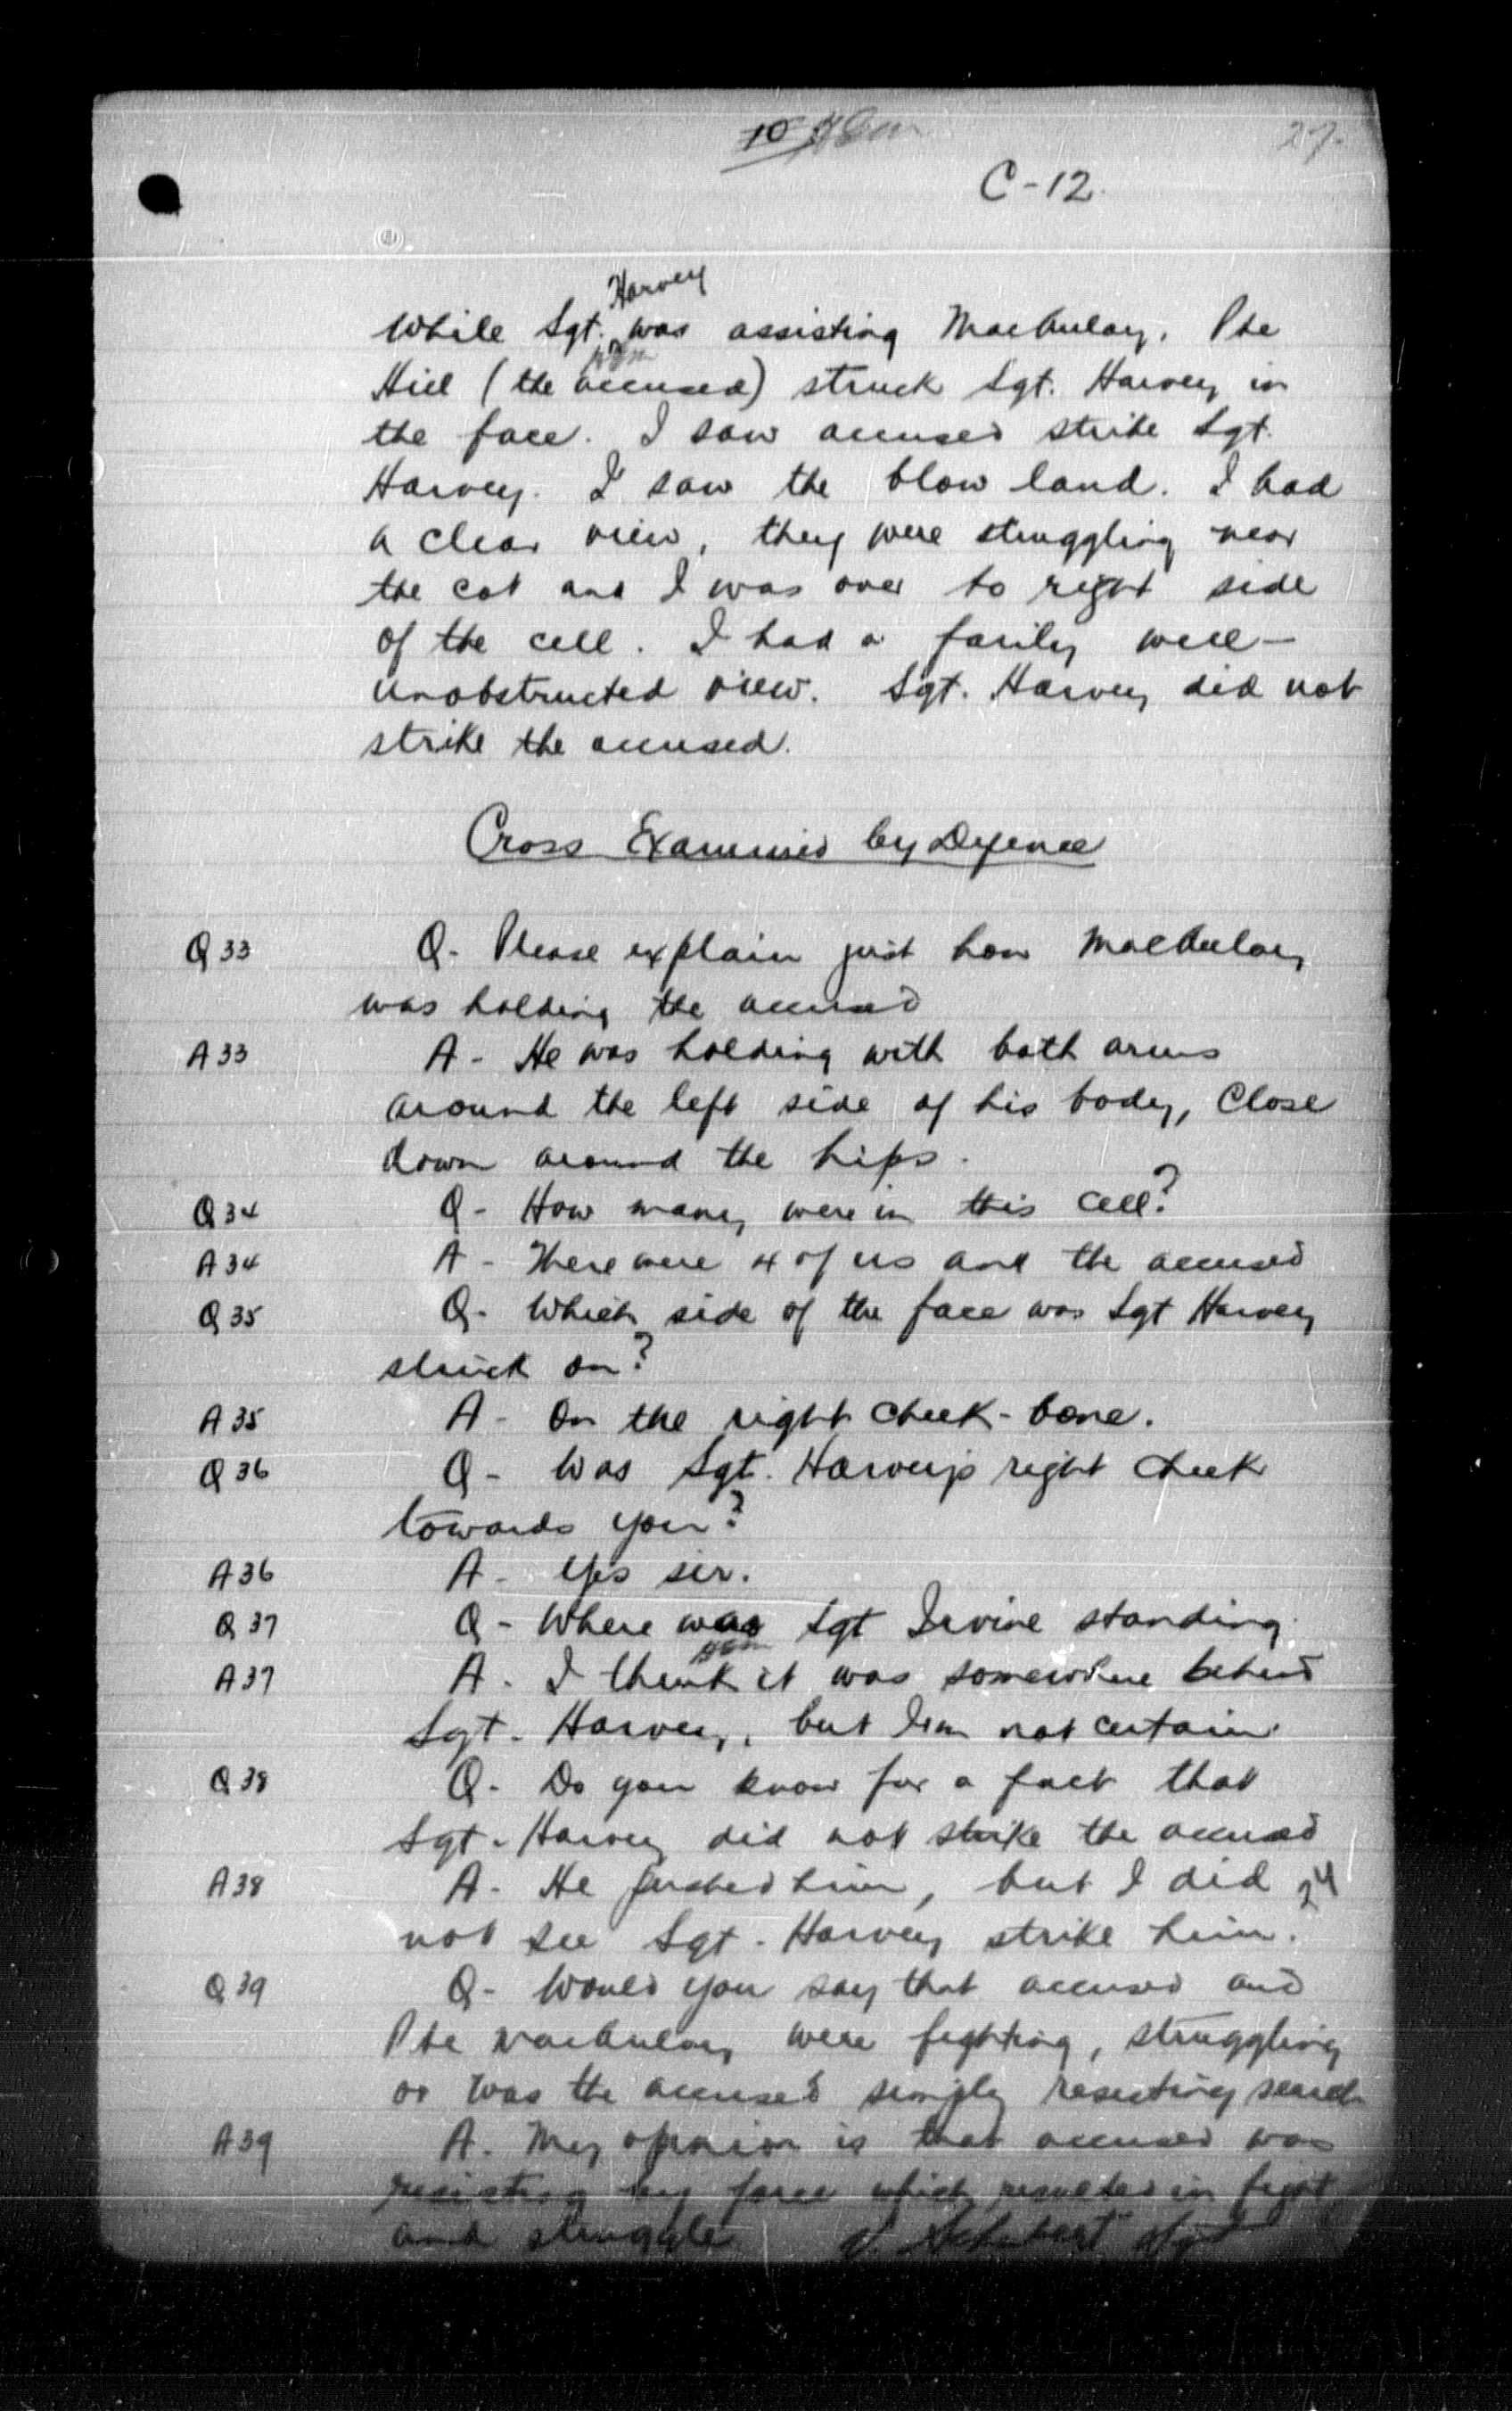 10
27.
C-12.
Harvey
While Sgt. was assisting MacAulay, Pte
Hill (the accused) struck Sgt. Harvey in
the face. I saw accused strike Sgt.
Harvey. I saw the blow land. I had
a clear view, they were struggling near
the cot and I was over to right side
of the cell. I had a farily well-
unobstructed view. Sgt. Harvey did not
strike the accused.
Cross Examined by Defence
Q33 Q- Please explain just how MacAulay
was holding the accused
A33 A- He was holding with both arms
around the left side of his body, Close
down around the hips.
Q34 Q- How many were in this cell?
A34 A- There were 4 of us and the accused
Q35 Q- Which side of the face was Sgt Harvey
struck on?
A35 A- On the right cheek-bone.
Q36 Q- Was Sgt. Harvey's right cheek
towards you?
A36 A- Yes sir.
Q37 Q- Where was Sgt Irvine standing.
A37 A. I think it was somewhere behind
Sgt. Harvey, but I'm not certain.
Q38 Q- Do you know for a fact that
Sgt. Harvey did not strike the accused
A38 A- He pushed him, but I did 24
not see Sgt. Harvey strike him.
Q39 Q- Would you say that accused and
Pte MacAulay were fighting, struggling
or was the accused simply resisting search
A39 A. My opinion is that accused was
resisting by force which resulted in fight
and struggle